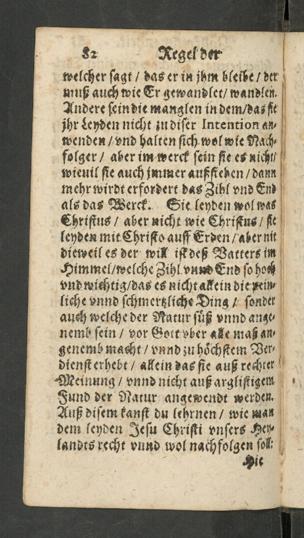 82 Regel der
welcher sagt / das er in jhm bleibe / der
muß auch wie Er gewandlet / wandlen.
Andere sein die manglen in dem / das sie
jhr Leyden nicht zu diser Intention an-
wenden / vnd halten sich wol wie Nach-
folger / aber im werck sein sie es nicht /
wieuil sie auch jmmer außstehen / dann
mehr wirdt erfordert das Zihl vnd End
als das Werck. Sie leyden wol was
Christus / aber nicht wie Christus / sie
leyden mit Christo auff Erden / aber nit
dieweil es der will ist deß Vatters im
Himmel / welche Zihl vnnd End so hoch
vnd wichtig / das es nicht allein die pein-
liche vnnd schmertzliche Ding / sonder
auch welche der Natur süß vnnd ange-
nemb sein / vor Gott vber alle maß an-
genemb macht / vnnd zu höchstem Ver-
dienst erhebt / allein das sie auß rechter
Meinung / vnnd nicht auß arglistigem
Fund der Natur angewendt werden.
Auß disem kanst du lehrnen / wie man
dem leyden Jesu Christi vnsers Hey-
landts recht vnnd wol nachfolgen soll:
Hie